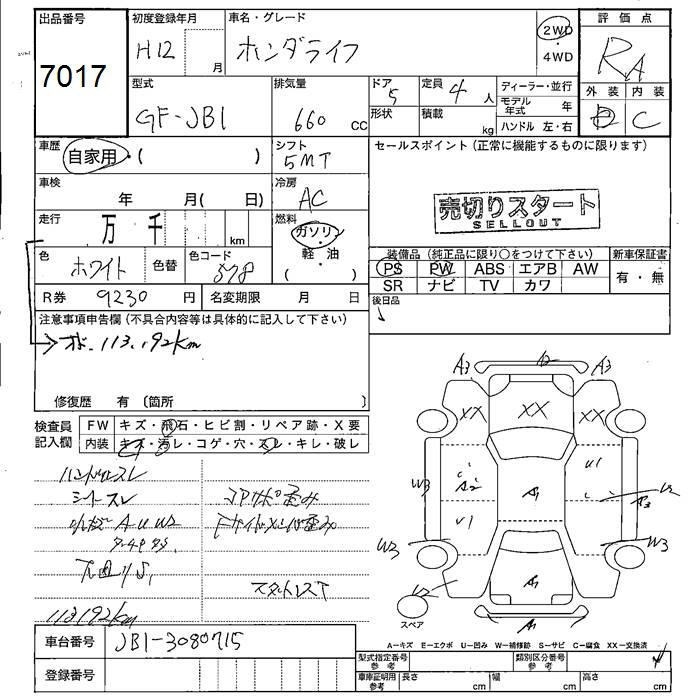 出品番号
7017
初度登録年月
H12 月
車名・グレード
ホンダライフ
2WD
・
4WD
評価点
RA
外装 内装
D C
型式
GF-JB1
排気量
660 cc
ドア 5
形状
定員 4 人
積載 kg
ディーラー・並行
モデル年式 年
ハンドル 左・右
車歴
自家用・( )
シフト
5MT
セールスポイント (正常に機能するものに限ります)
売切りスタート
SELLOUT
車検
年 月( 日)
冷房
AC
走行
万 千 km
燃料
ガソリン
・
軽・油
( )
色
ホワイト
色替
色コード
578
装備品 (純正品に限り○をつけて下さい)
PS PW ABS エアB AW
SR ナビ TV カワ
新車保証書
有・無
R券 9230 円
名変期限 月 日
後日品
注意事項申告欄 (不具合内容等は具体的に記入して下さい)
113,192km
修復歴 有 〔箇所 〕
検査員
記入欄
FW キズ・飛石・ヒビ割・リペア跡・X要
内装 キズ・汚レ・コゲ・穴・スレ・キレ・破レ
ハンドルスレ
シートスレ
A U W2
下回りS1
スタットレスT
113192km
A3 A2 A3
XX XX XX
A2 A1 U1
W3 U1 A3
W3 W3
A1
A1
スペア
A−キズ E−エクボ U−凹み W−補修跡 S−サビ C−腐食 XX−交換済
車台番号 JB1-3080715
登録番号
型式指定番号
参考
類別区分番号
参考
車庫証明用
参考
長さ cm
幅 cm
高さ cm